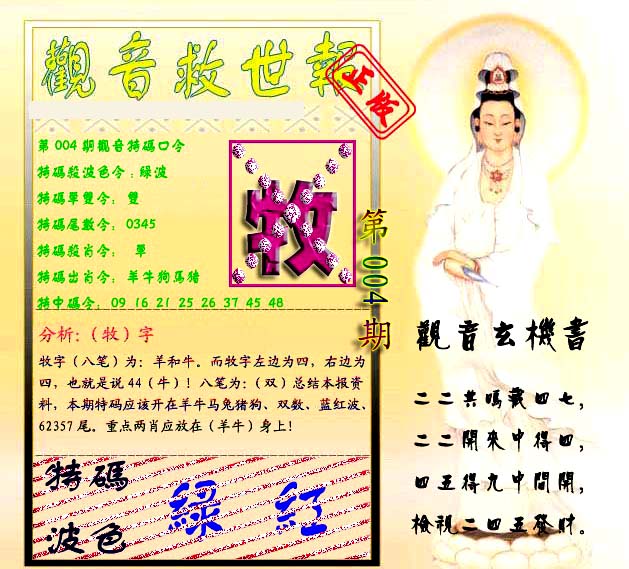 觀音救世報
正版
第004期觀音特碼口令
特碼殺波色令:綠波
特碼單雙令: 雙
特碼尾數令: 0345
特碼殺肖令: 單
特碼出肖令: 羊牛狗馬豬
特中碼令: 09 16 21 25 26 37 45 48
牧
第004期
分析:（牧）字
牧字（八笔）为：羊和牛。而牧字左边为四，右边为
四，也就是说44（牛）！八笔为：（双）总结本报资
料，本期特码应该开在羊牛马兔猪狗、双数、蓝红波、
62357尾。重点两肖应放在（羊牛）身上！
特碼
波色
綠 紅
觀音玄機書
二二共鳴載四七，
二二開來中得四，
四五得九中間開，
檢視二四五發財。